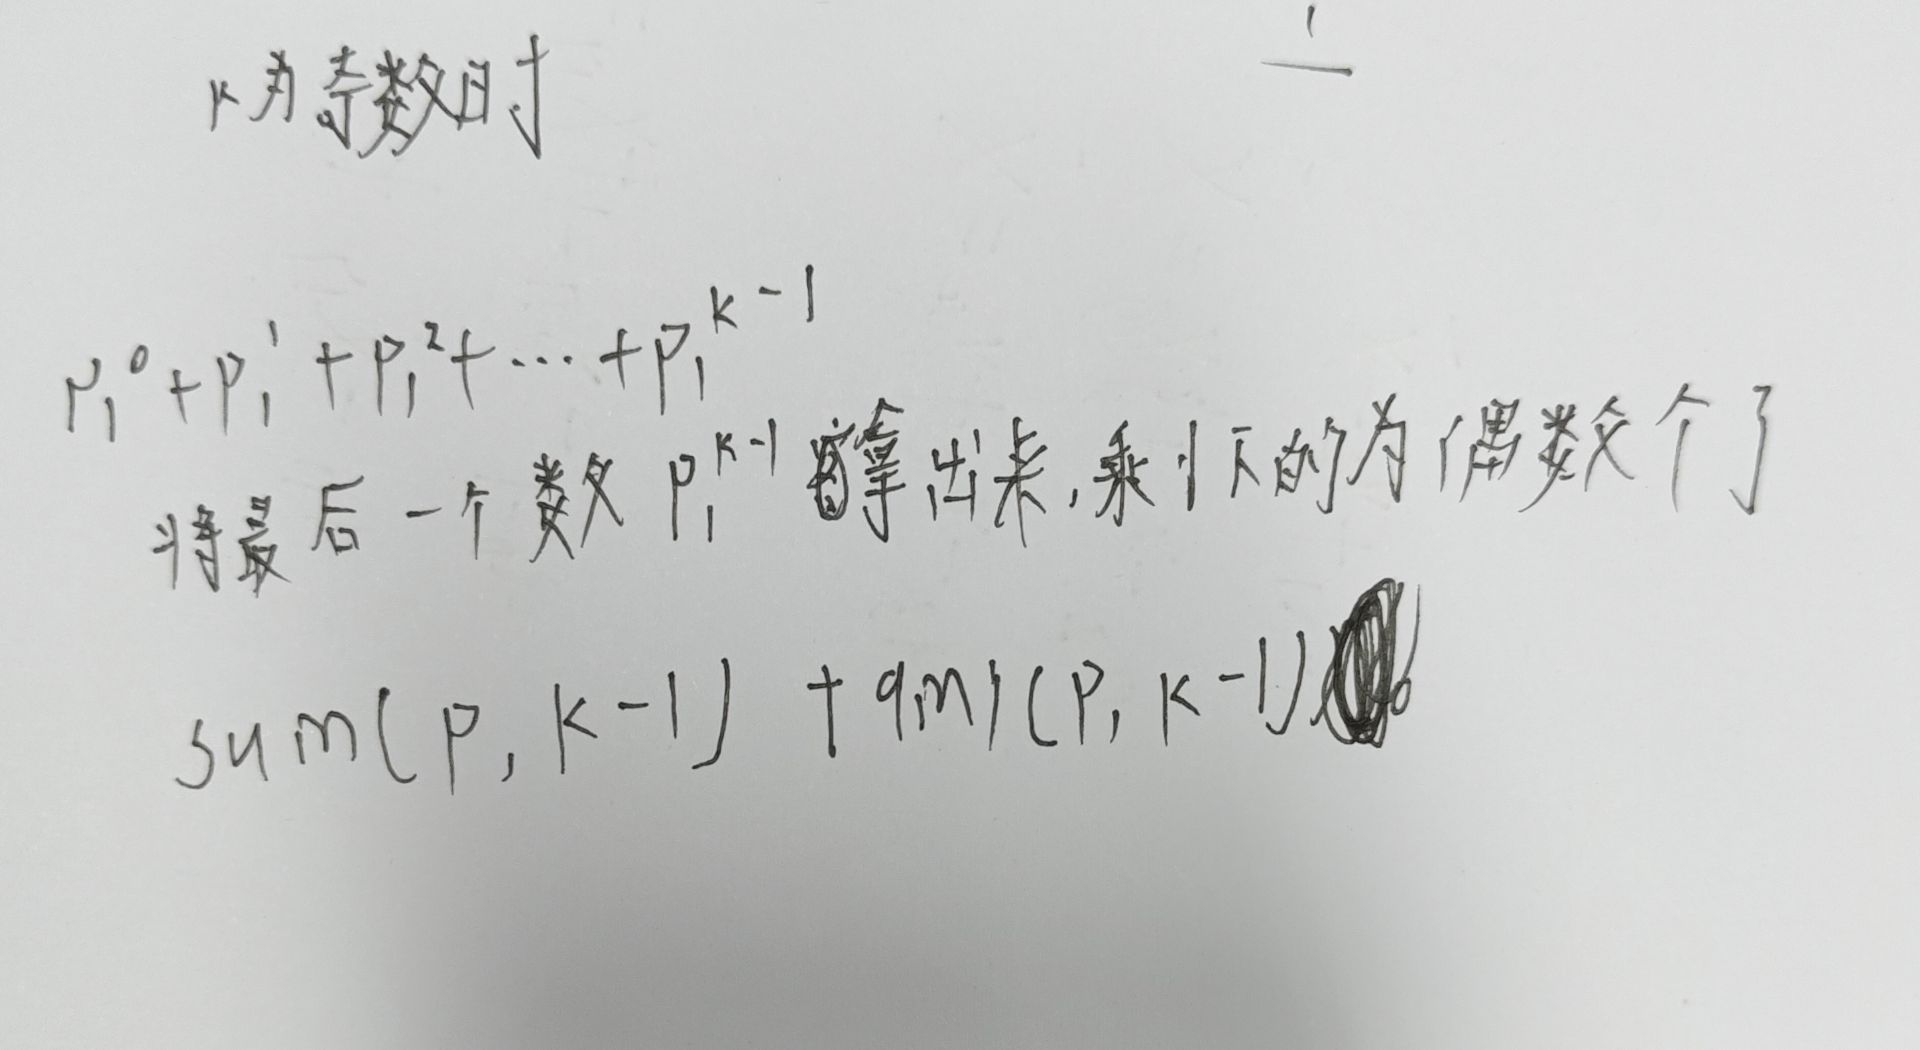 k为奇数时
p₁⁰+p₁¹+p₁²+…+p₁ᵏ⁻¹
将最后一个数 p₁ᵏ⁻¹ 拿出来,乘下的为偶数个了
sum(p, k-1) + qmi(p, k-1)